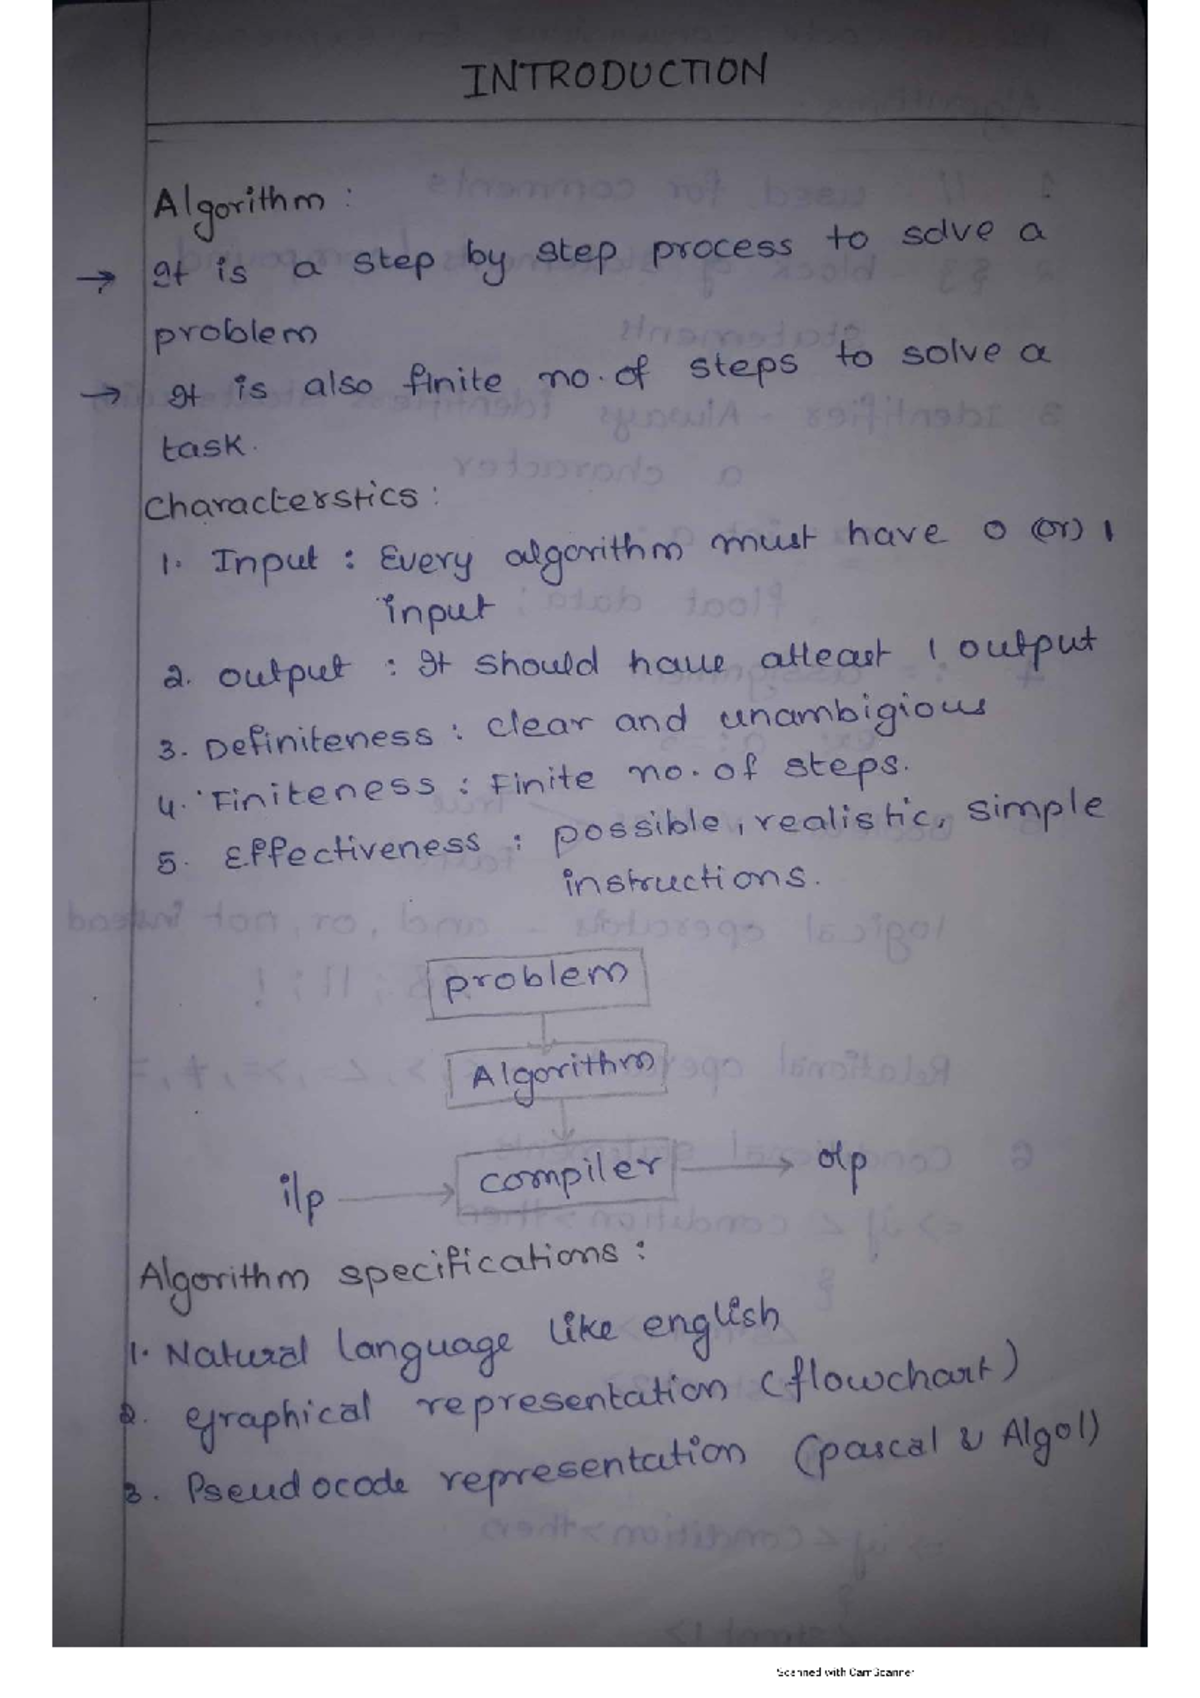 INTRODUCTION
Algorithm :
→ It is a step by step process to solve a
problem
→ It is also finite no. of steps to solve a
task.
Characterstics :
1. Input : Every algorithm must have 0 (or) 1
input
2. output : It should have atleast 1 output
3. Definiteness : clear and unambigious
4. Finiteness : Finite no. of steps.
5. Effectiveness : possible, realistic, simple
instructions.
problem
Algorithm
i/p → compiler → o/p
Algorithm specifications :
1. Natural language like english
2. Graphical representation (flowchart)
3. Pseudocode representation (pascal & Algol)
Scanned with CamScanner